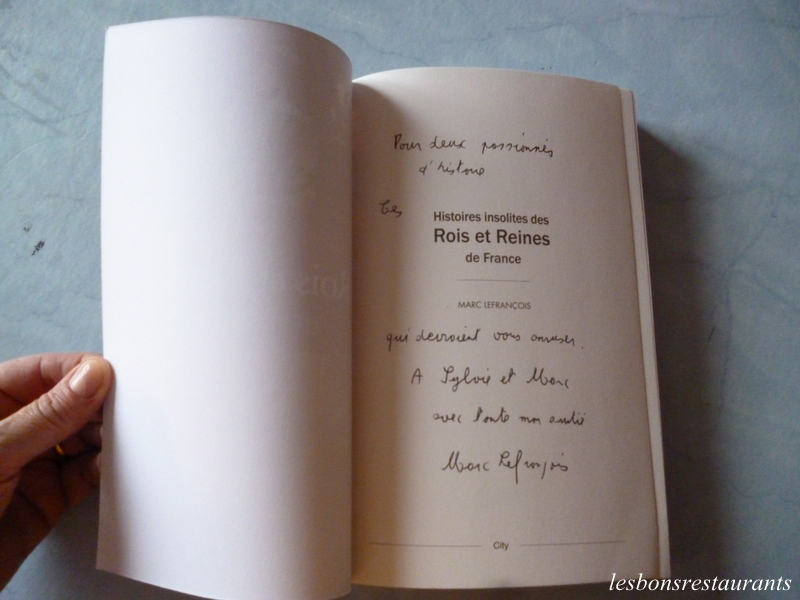 Pour deux passionnés
d'histoire
Ces
Histoires insolites des
Rois et Reines
de France
MARC LEFRANÇOIS
qui devraient vous amuser.
A Sylvie et Marc
avec toute mon amitié
Marc Lefrançois
City
lesbonsrestaurants